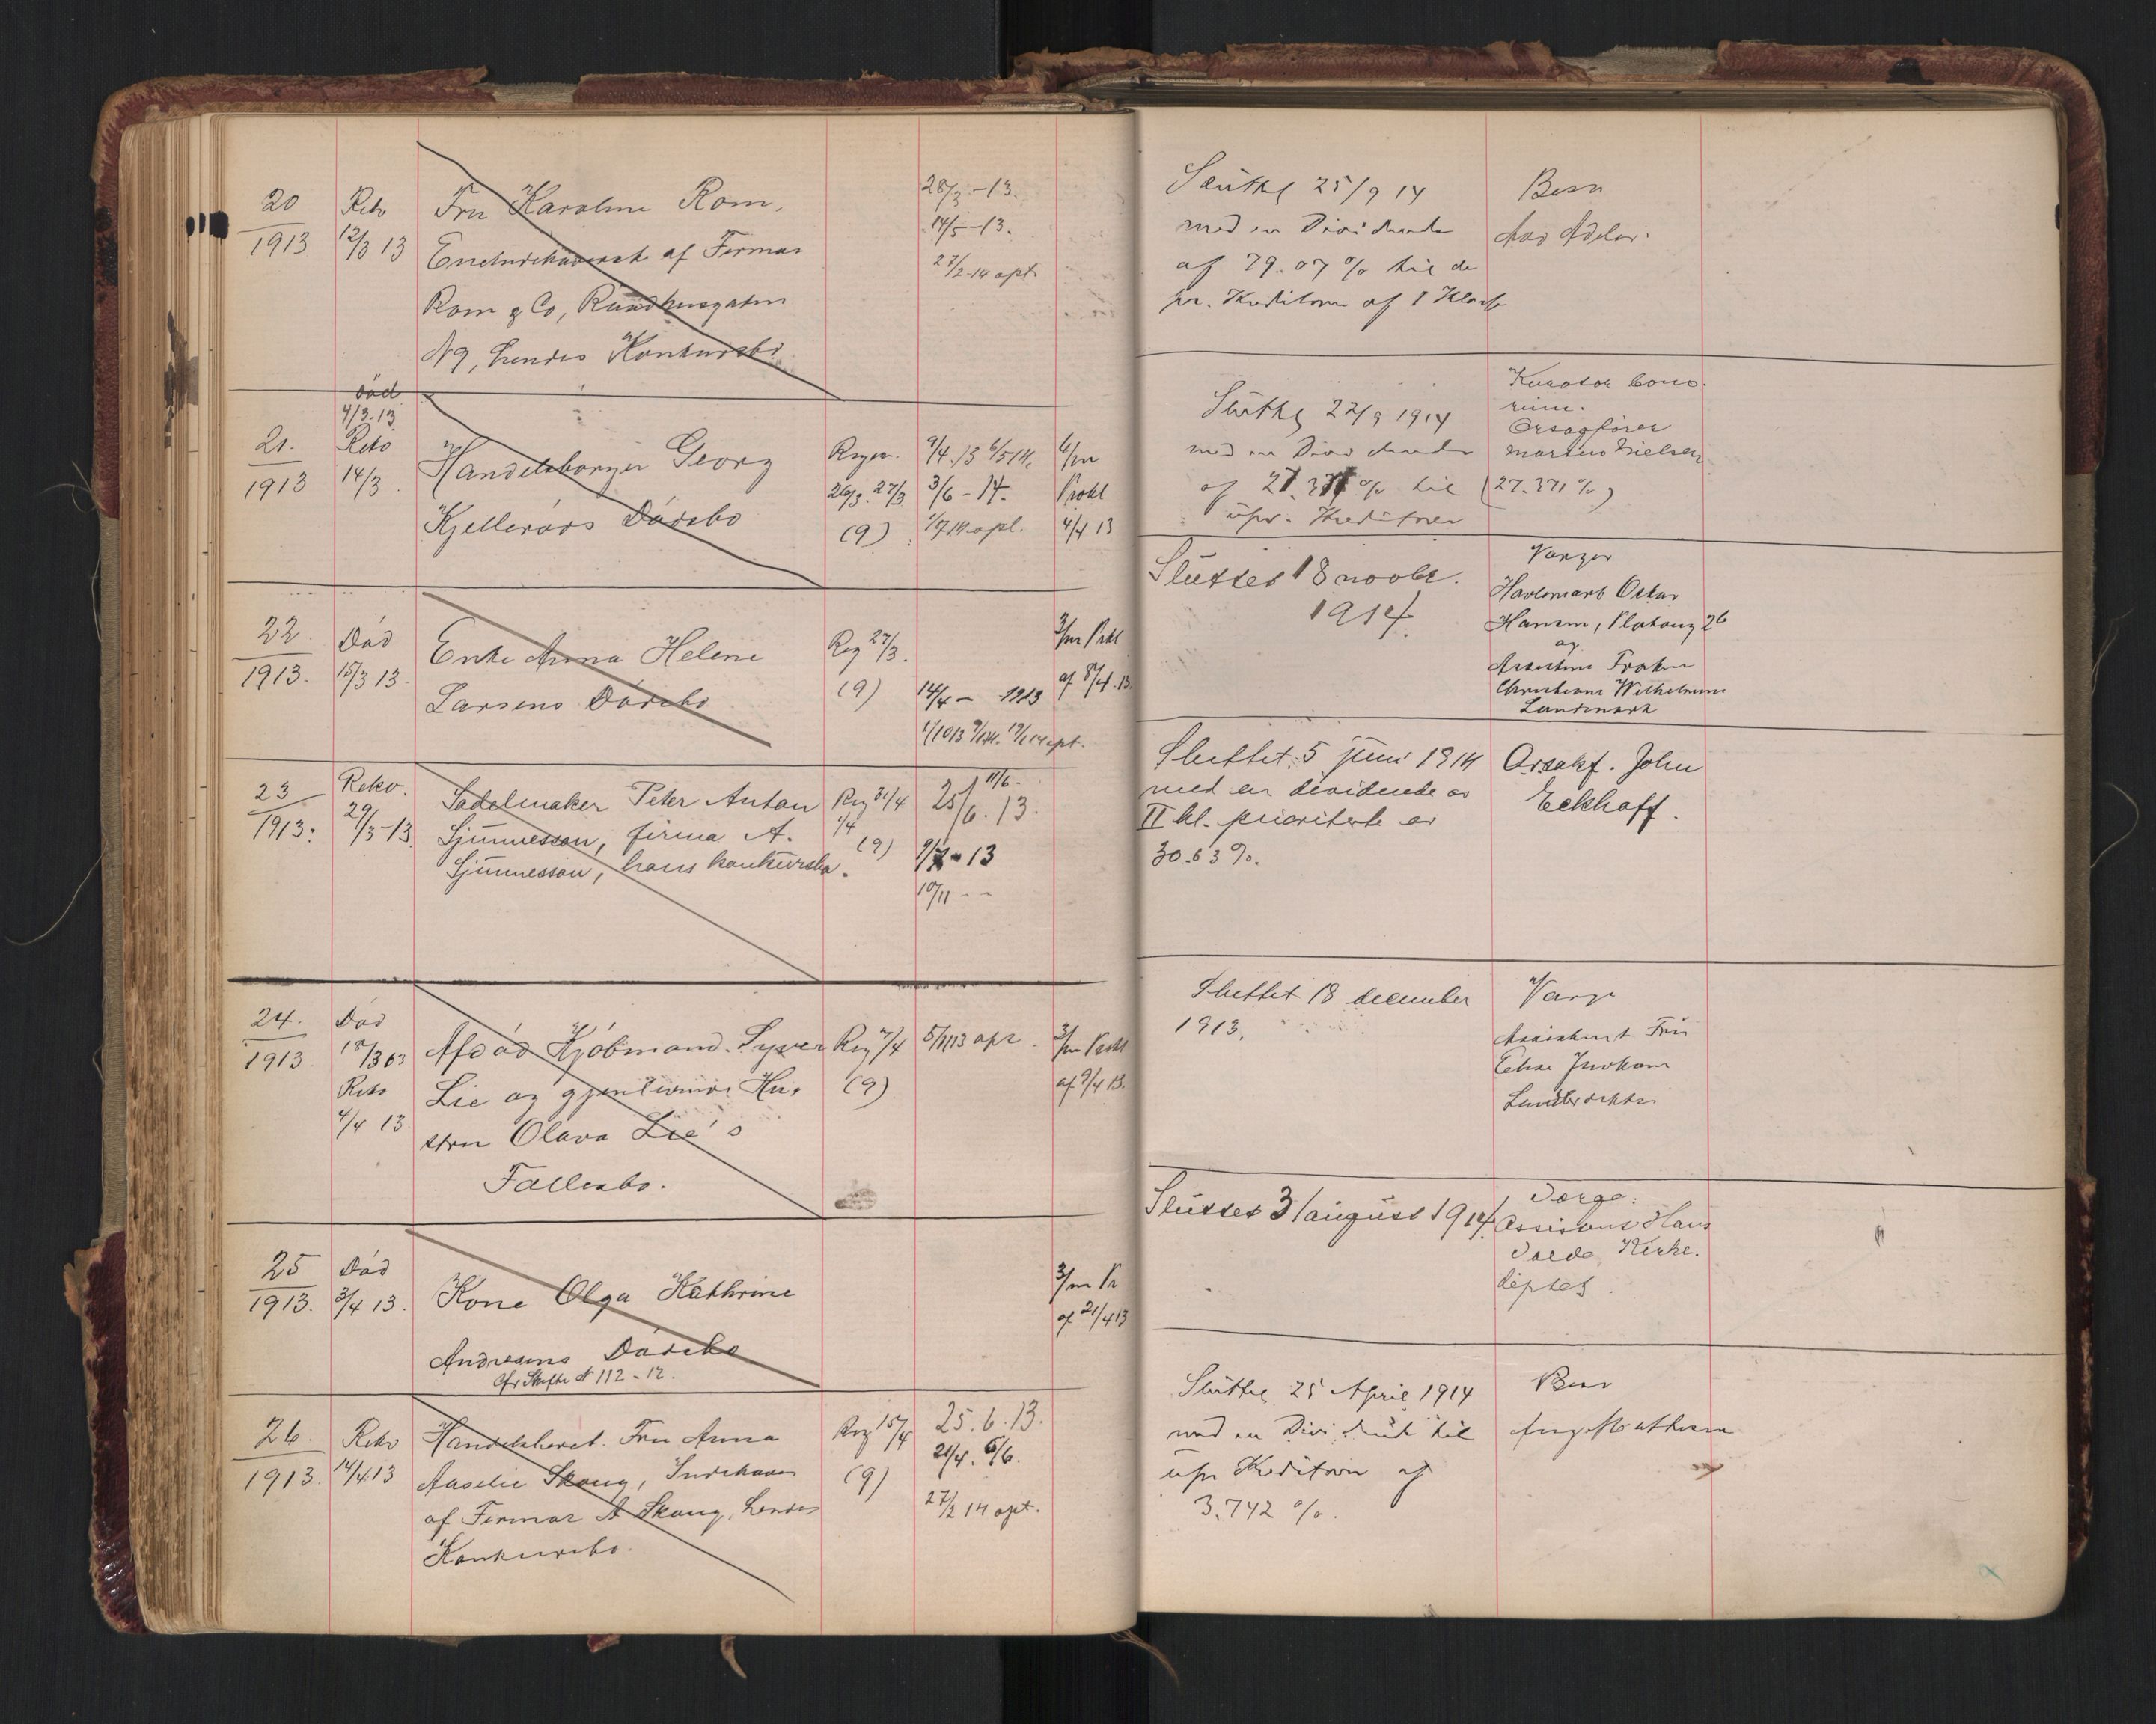 20
1913
Rekv
12/3 13
Fru Karoline Rom,
Eneindehaversk af Firmaet
Rom & Co, Raadhusgaten
N 9, hendes Konkursbo
28/3 - 13.
14/5 - 13.
27/2 - 14 opt.
Sluttet 25/9 14
med en Dividende
af 79.07 % til de
pr. Kreditorer af I Klasse
Besn
21.
1913
død
4/3 13
Rekv
14/3.
Handelsborger Georg
Kjelleruds Dødsbo
26/3. 27/3
(9)
9/4 13 6/5 14.
3/6 - 14.
1/7 14 opt.
6/m
Prokl
4/4 13
Sluttet 22/9 1914
med en Dividende
af 27.371 % til
upr. Kreditorer
Kurator bono-
rum.
Orsagfører
Martius Nielsen
(27.371 %)
22.
1913.
Død
15/3 13.
Enke Anna Helene
Larsens Dødsbo
Reg 27/3.
(9)
14/4 - 1913
3/m Prkl
af 8/4 13.
Sluttet 18 novbr.
1914.
Værger
Oskar
Hansen, Platoug 26
og
Assistent Frøken
Christiane Wilhelmine
Landmark
23
1913.
Rekv.
29/3 - 13
Sadelmaker Peter Anton
Sjunnesson, firma A.
Sjunnesson, hans konkursbo.
Reg 31/4
1/4
(9)
11/6 -
25/6. 13.
9/7 - 13
10/11 - -
Sluttet 5 juni 1914
med en dividende av
II kl. prioriterte av
30.63 %.
Orsakf. John
Eckhoff.
24.
1913
Død
18/3 03
Rekv
4/4 13
Afdød Kjøbmand Syver
Lie og gjenlevende Hu-
stru Olava Lie's
Fællesbo.
Reg 7/4
(9)
5/11 13 opt.
3/m Prokl
af 9/4 13.
Sluttet 18 december
1913.
Værge
Assistent Fru
25
1913.
Død
3/4 13.
Kone Olga Kathrine
Andresens Dødsbo
cfr Skifte N 112 - 12.
3/m Pr
af 21/4 13
Sluttet 31 august 1914.
Værge:
Assistent Hans
Kirke-
deptet.
26.
1913.
Rekv
14/4 13
Handelsberet. Fru Anna
Aaselie Skoug, Indehaver
af Firmaet A Skoug, hendes
Konkursbo.
Reg 15/4
(9)
25. 6. 13.
21/4. 6/6.
27/2 14 opt.
Sluttet 25 April 1914
med en Dividende til
upr Kreditorer af
3.742 %.
Besn